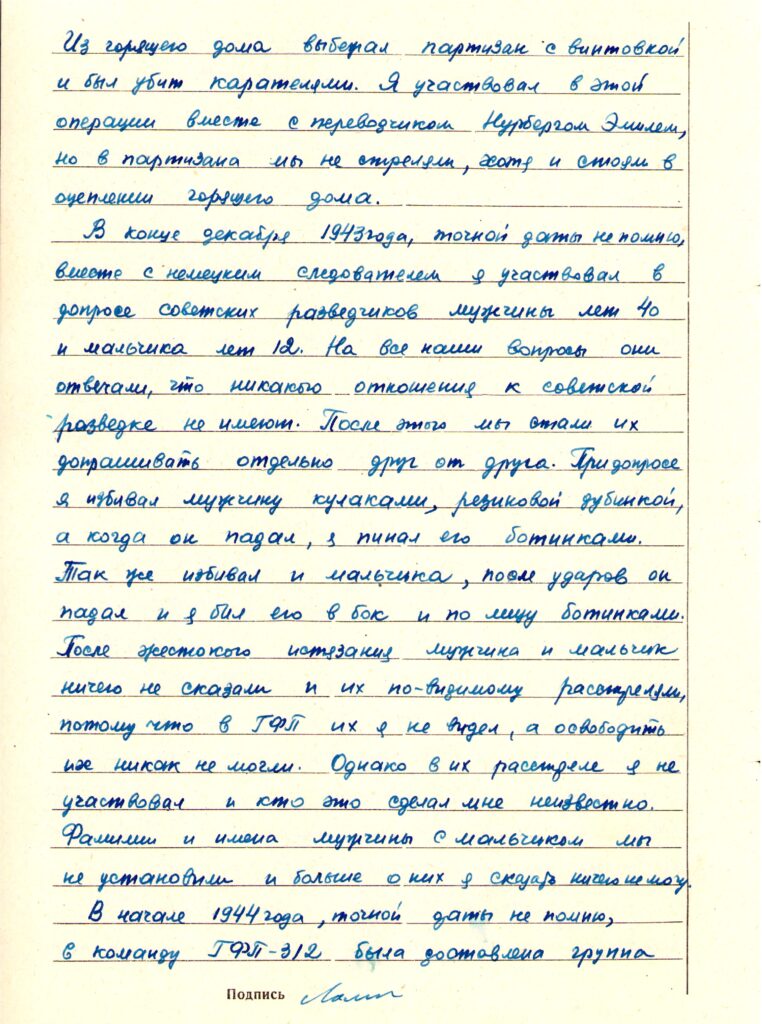 Из горящего дома выбежал партизан с винтовкой
и был убит карателями. Я участвовал в этой
операции вместе с переводчиком Нурбергом Эмилем,
но в партизана мы не стреляли, хотя и стояли в
оцеплении горящего дома.
В конце декабря 1943 года, точной даты не помню,
вместе с немецким следователем я участвовал в
допросе советских разведчиков мужчины лет 40
и мальчика лет 12. На все наши вопросы они
отвечали, что никакого отношения к советской
разведке не имеют. После этого мы стали их
допрашивать отдельно друг от друга. При допросе
я избивал мужчину кулаками, резиновой дубинкой,
а когда он падал, я пинал его ботинками.
Так же избивал и мальчика, после ударов он
падал и я бил его в бок и по лицу ботинками.
После жестокого истязания мужчина и мальчик
ничего не сказали и их по-видимому расстреляли,
потому что в ГФП их я не видел, а освободить
их никак не могли. Однако в их расстреле я не
участвовал и кто это сделал мне неизвестно.
Фамилии и имена мужчины с мальчиком мы
не установили и больше о них я сказать ничего не могу.
В начале 1944 года, точной даты не помню,
в команду ГФП-312 была доставлена группа
Подпись